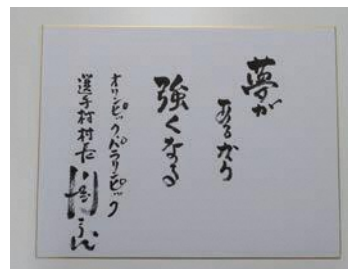 夢が
あるから
強くなる
オリンピックパラリンピック
選手村村長